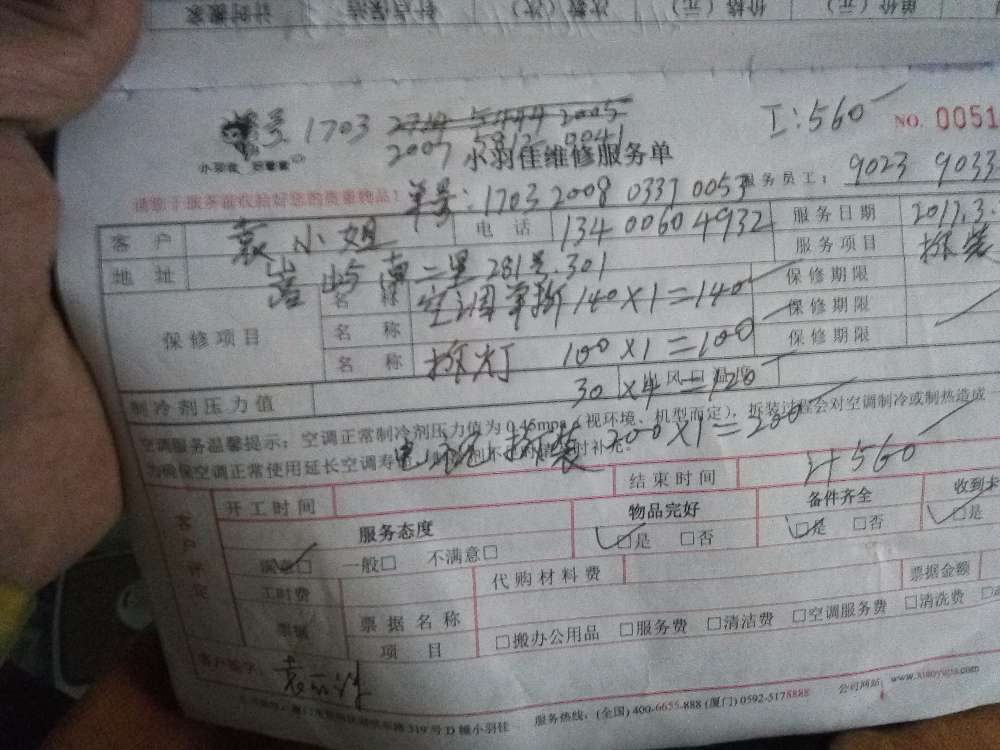 计时搬家 钟点保洁 (次) 次数 (元) 价格 (元) 单价
单号 1703 2724 5444 2005 I:560 NO. 0051
2007 5812 0041
小羽佳维修服务单
单号:1703 2008 0337 0053 服务员工: 9023 9033
客 户 袁小姐 电 话 134 0060 4932 服务日期 2017.3.
地 址 嵩屿南二里281号.301 服务项目 拆装
保修项目 名 称 空调单拆 140×1=140 保修期限
名 称 100×1=100 保修期限
名 称 拆灯 30×4=120 保修期限
制冷剂压力值 风口温度
空调服务温馨提示:空调正常制冷剂压力值为0.45mpa(视环境、机型而定),拆装过程会对空调制冷或制热造成
为确保空调正常使用延长空调寿 时补充。
拆装 200×1=200
计560
开工时间 结束时间
客户评定 服务态度 物品完好 备件齐全 收到卡
满意□ 一般□ 不满意□ □是 □否 □是 □否 □是
工时费 代购材料费 票据金额
票据 票据名称
项 目 □搬办公用品 □服务费 □清洁费 □空调服务费 □清洗费
客户签字:
319号D幢小羽佳 服务热线:(全国) 400-6655-888 (厦门) 0592-5178888 公司网站: www.xiaoyujia.com